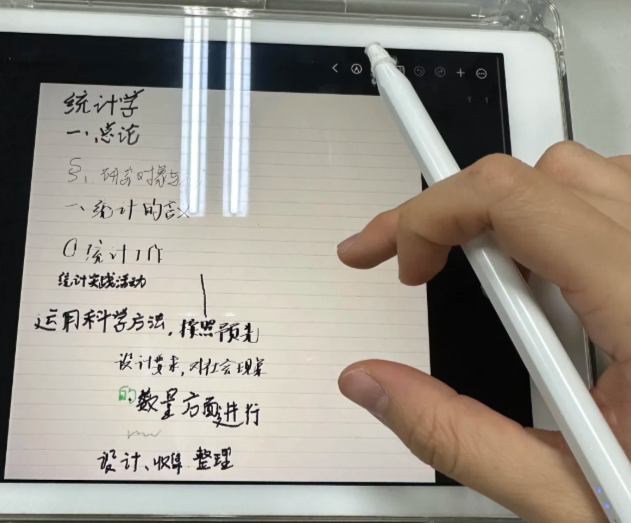 统计学
一、总论
§1 研究对象与
一、统计的含义
① 统计工作
统计实践活动
运用科学方法，按照预先
设计要求，对社会现象
的数量方面进行
设计、收集 整理